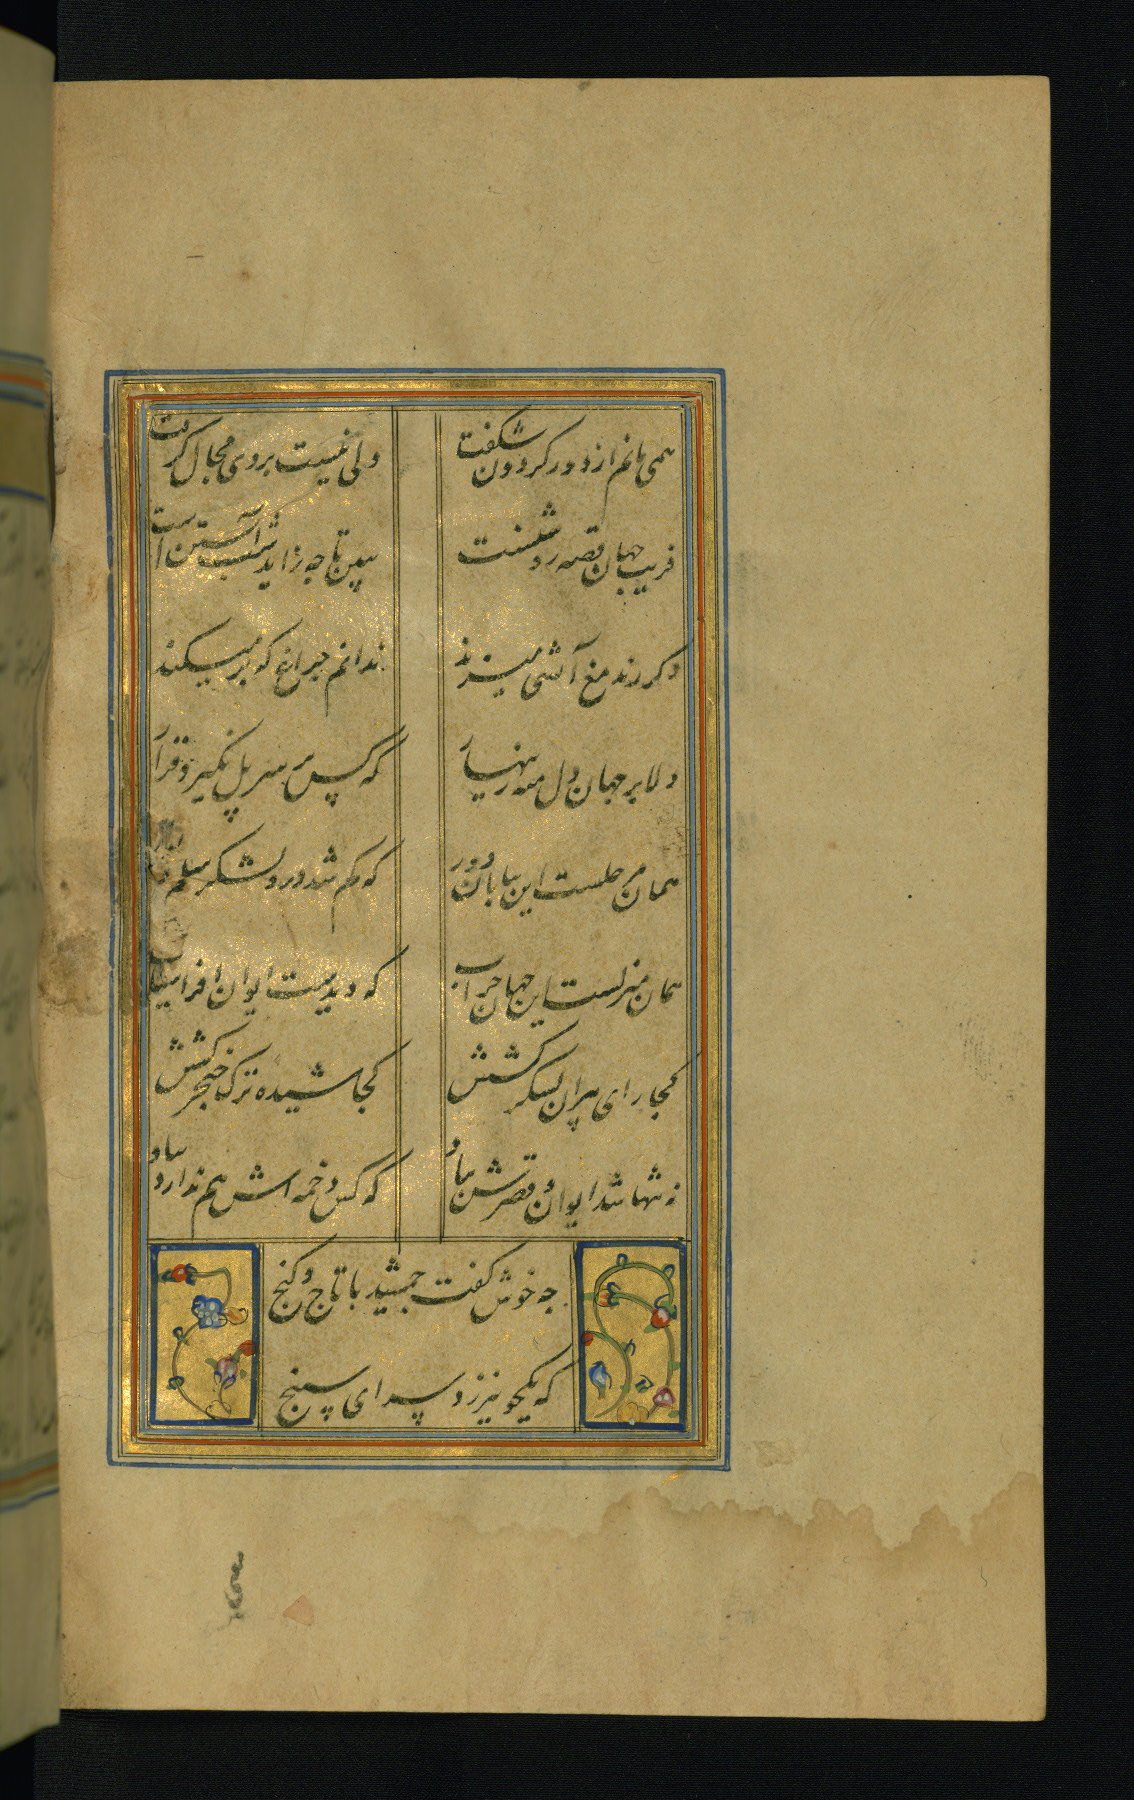 همی مانم از دور کردون شکفت ولی نیست بروی مجال کرفت
فریب جهان قصه روشنست ببین تا چه زاید شب آبستن است
دکر رند مغ آتشی میزند ندانم چراغ که بر میکند
دلا بر جهان دل منه زینهار که کس بر سر پل نکیرد قرار
همان مرحلست این بیابان دور که کم شد درو لشکر سلم و تور
همان منزلست این جهان خراب که دیدست ایوان افراسیاب
کجا رای پیران لشکر کشش کجا شیده ترک خنجر کشش
نه تنها شد ایوان و قصرش بباد که کس دخمه اش هم ندارد بیاد
چه خوش کفت جمشید با تاج و کنج
که یکجو نیرزد سرای سپنج